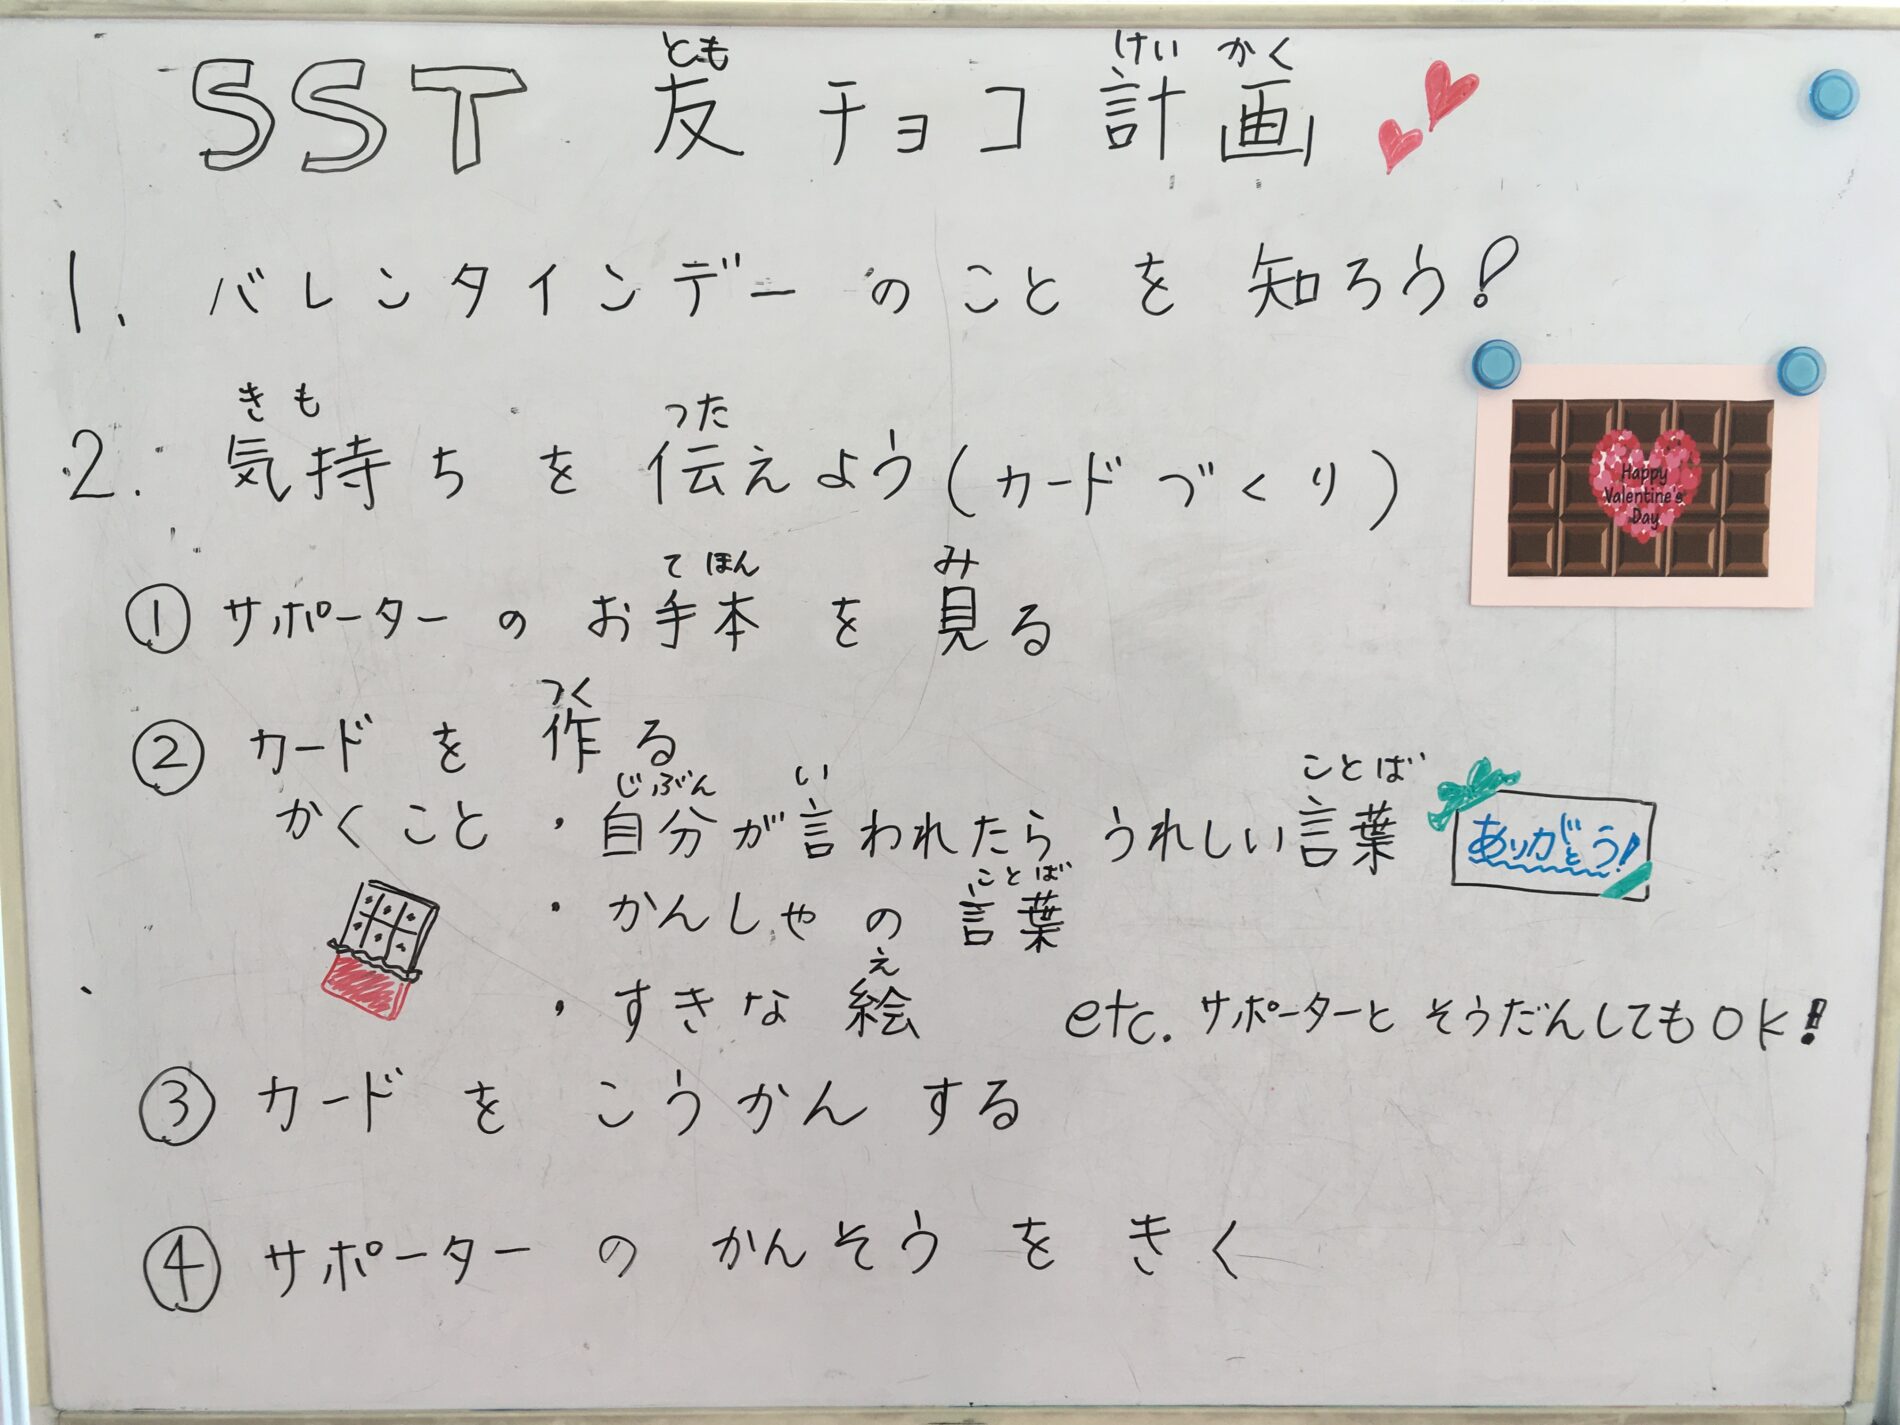 とも けい かく
SST 友チョコ計画
1. バレンタインデーのことを知ろう!
きも つた
2. 気持ちを伝えよう(カードづくり)
Happy
Valentine's
Day
てほん み
① サポーターのお手本を見る
つく
② カードを作る
じぶん い ことば
かくこと ・自分が言われたらうれしい言葉
ありがとう!
ことば
・かんしゃの言葉
え
・すきな絵 etc. サポーターとそうだんしてもOK!
③ カードをこうかんする
④ サポーターのかんそうをきく